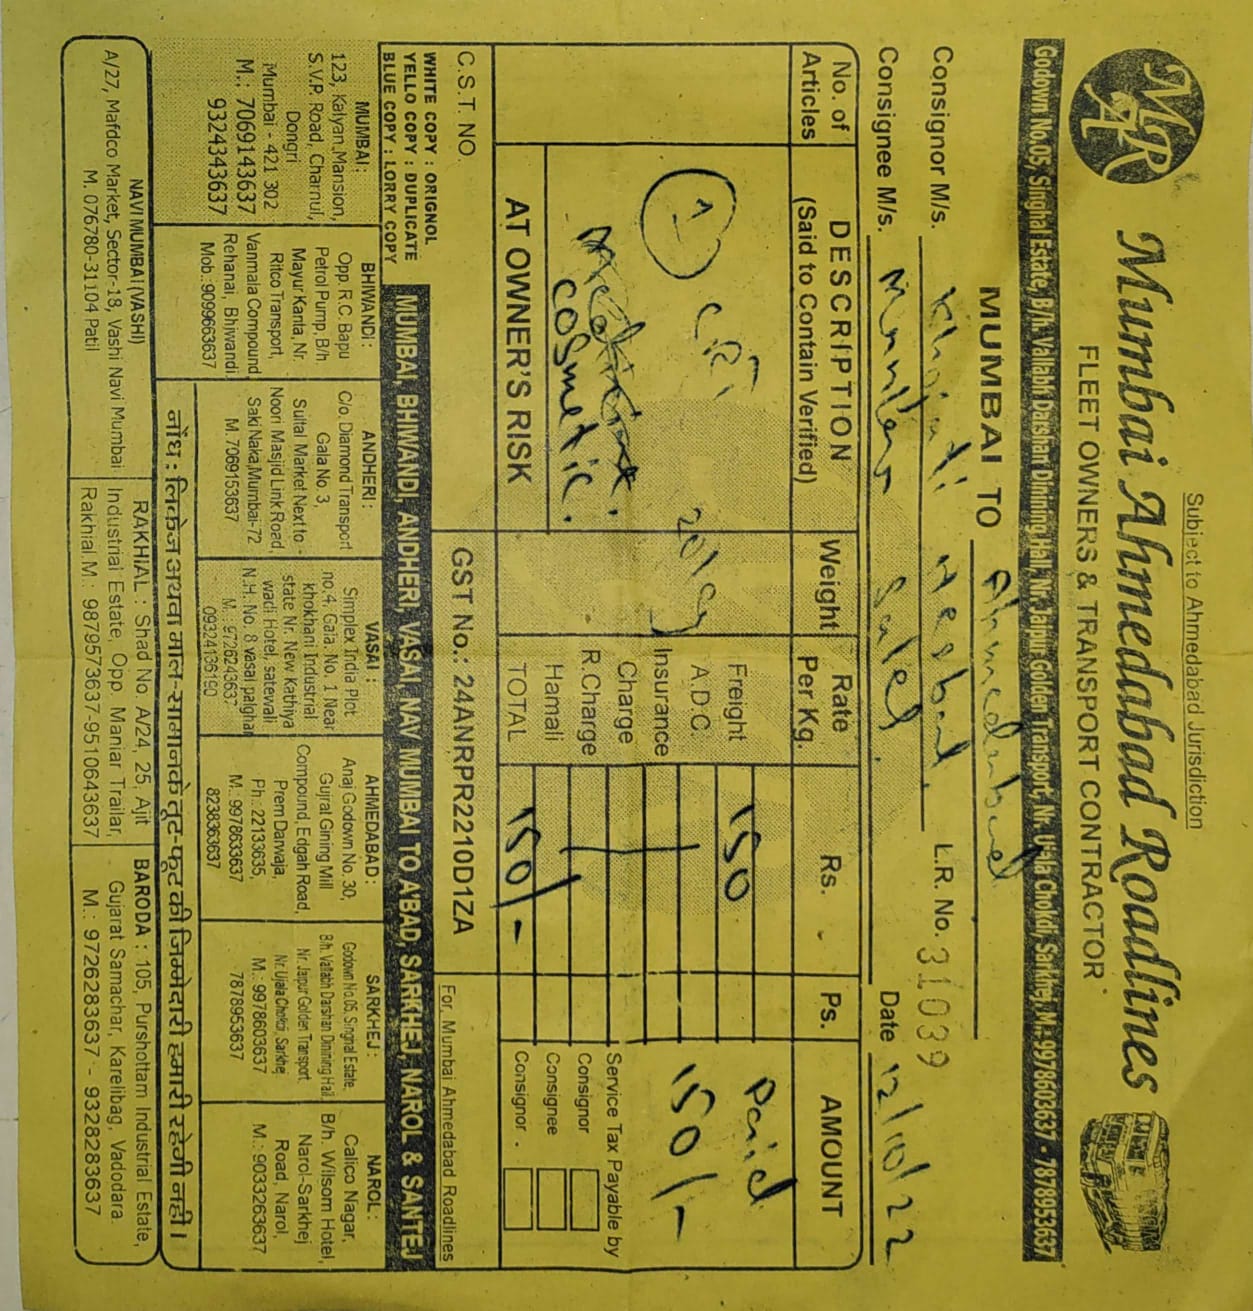 Subject to Ahmedabad Jurisdiction
MAR
Mumbai Ahmedabad Roadlines
FLEET OWNERS & TRANSPORT CONTRACTOR
Godown No.05, Singhal Estate, B/h. Vallabh Darshan Dinning Hall, Nr. Jaipur Golden Transport, Nr. Ujala Chokdi, Sarkhej, M.-9978603637 - 7878953637
MUMBAI TO Ahmedabad
Consignor M/s. Herbal. L.R. No. 31039
Consignee M/s. Sales. Date 12/10/22
No. of Articles DESCRIPTION (Said to Contain Verified) Weight Rate Per Kg. Rs. Ps. AMOUNT
1 20kg Freight 150 Paid
A.D.C. 150/-
Insurance
Charge
R.Charge
Hamali
cosmetic.
AT OWNER'S RISK TOTAL 150/-
Service Tax Payable by
Consignor
Consignee
Consignor .
C.S.T. NO. GST No.: 24ANRPR2210D1ZA For, Mumbai Ahmedabad Roadlines
WHITE COPY : ORIGNOL
YELLO COPY : DUPLICATE
BLUE COPY : LORRY COPY
MUMBAI, BHIWANDI, ANDHERI, VASAI, NAV MUMBAI TO A'BAD, SARKHEJ, NAROL & SANTEJ
MUMBAI:
123, Kalyan Mansion,
S.V.P. Road, Charnul,
Dongri
Mumbai - 421 302
M.: 7069143637
9324343637
BHIWANDI:
Opp. R.C. Bapu
Petrol Pump, B/h
Mayur Kanta, Nr.
Ritco Transport,
Vanmala Compound
Rehanai, Bhiwandi
Mob.:9099663637
ANDHERI :
C/o. Diamond Transport
Gala No. 3,
Sultal Market Next to -
Noori Masjid Link Road,
Saki Naka,Mumbai-72
M. 7069153637
VASAI :
Simplex India Plot
no.4, Gala, No. 1 Near
khokhani Industrial
state Nr. New Kathiya
wadi Hotel, satewali
N.H. No. 8 vasai palghar
M.: 9728243637
09324136190
AHMEDABAD :
Anaj Godown No. 30,
Gujrat Gining Mill
Compound, Edgah Road,
Prem Darwaja,
Ph.: 22133635,
M.: 9978633637
8238363637
SARKHEJ :
Godown No.05, Singnal Estate,
B/h. Vallabh Darshan Dinning Hall
Nr. Jaipur Golden Transport
Nr. Ujala Chokdi, Sarkhej
M.: 9978603637
7878953637
NAROL :
Calico Nagar,
B/h. Wilsom Hotel,
Narol-Sarkhej
Road, Narol,
M.: 9033263637
नोंध : लिकेज अथवा माल-सामानके तूट-फूट की जिम्मेदारी हमारी रहेगी नही।
NAVI MUMBAI (VASHI)
A/27, Mafdco Market, Sector-18, Vashi Navi Mumbai
M. 076780-31104 Patil
RAKHIAL : Shad No. A/24, 25, Ajit
Industrial Estate, Opp. Maniar Trailar,
Rakhial M.: 9879573637-9510643637
BARODA : 105, Purshottam Industrial Estate,
Gujarat Samachar, Karelibag, Vadodara.
M.: 9726283637 - 9328283637